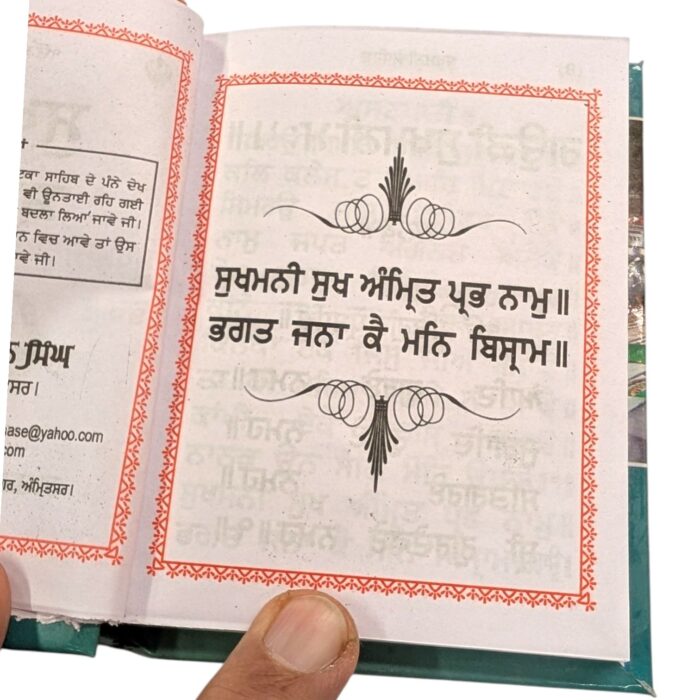 ਟਕਾ ਸਾਹਿਬ ਦੇ ਪੰਨੇ ਦੇਖ
ਵੀ ਊਨਤਾਈ ਰਹਿ ਗਈ
ਬਦਲਾ ਲਿਆਂ ਜਾਵੇ ਜੀ।
ਨ ਵਿਚ ਆਵੇ ਤਾਂ ਉਸ
ਾਵੇ ਜੀ।
ਸਿੰਘ
ਤਸਰ।
ase@yahoo.com
com
ਰ, ਅੰਮ੍ਰਿਤਸਰ।
ਸੁਖਮਨੀ ਸੁਖ ਅੰਮ੍ਰਿਤ ਪ੍ਰਭ ਨਾਮੁ॥
ਭਗਤ ਜਨਾ ਕੈ ਮਨਿ ਬਿਸ੍ਰਾਮ॥